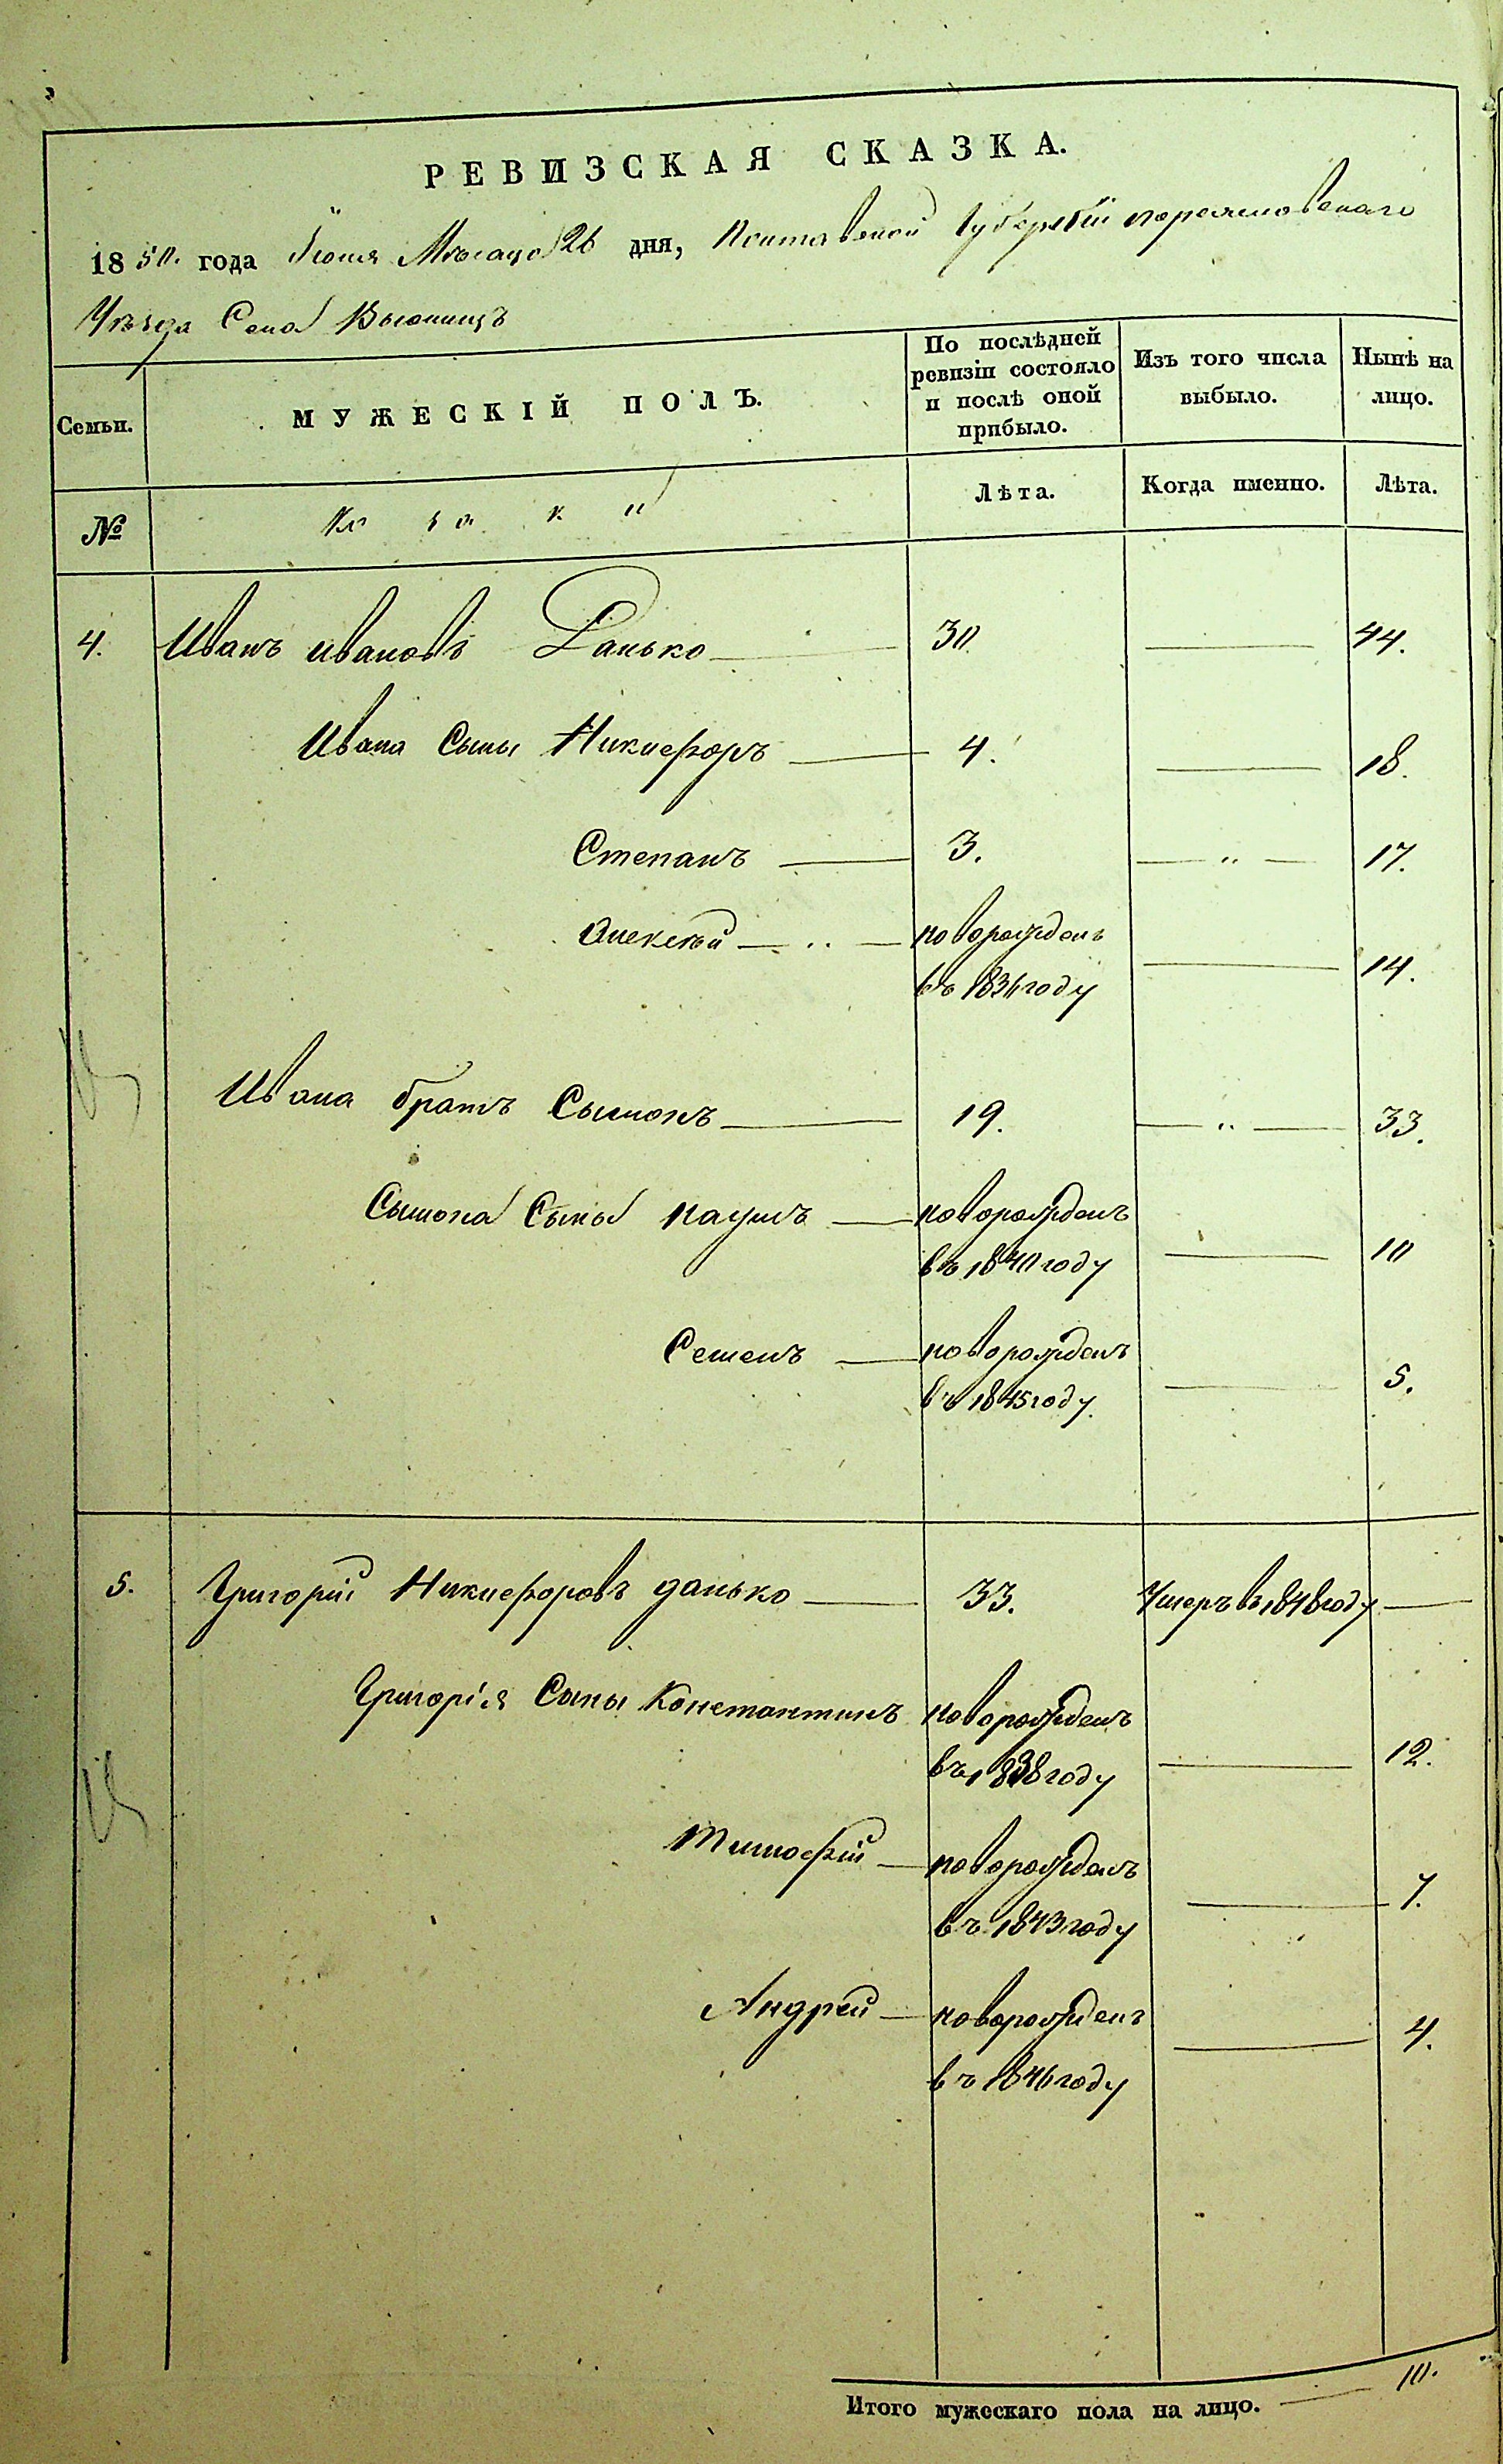 РЕВИЗСКАЯ СКАЗКА.
1850. года Іюня Мѣсяца 26 дня, Полтавской Губерніи Переяславскаго
Уѣзда Села Вьюнищъ
Семьи. МУЖЕСКІЙ ПОЛЪ. По послѣдней ревизіи состояло и послѣ оной прибыло. Изъ того числа выбыло. Нынѣ на лицо.
№ Козаки Лѣта. Когда именно. Лѣта.
4. Иванъ Ивановъ Данько 30 44.
Ивана Сыны Никифоръ 4. 18.
Степанъ 3. 17.
Алексѣй новорожденъ
въ 1836 году 14.
Ивана братъ Сымонъ 19. 33.
Сымона Сыны Наумъ новорожденъ
въ 1840 году 10
Семенъ новорожденъ
въ 1845 году. 5.
5. Григорій Никифоровъ Данько 33. Умеръ въ 1848 году
Григорія Сыны Константинъ новорожденъ
въ 1838 году 12.
Тимофій новорожденъ
въ 1843 году 7.
Андрей новорожденъ
въ 1846 году 4.
Итого мужескаго пола на лицо. 10.